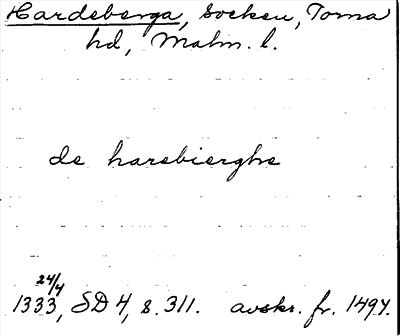 Hardeberga, socken, Torna
hd, Malm. l.
de harebierghe
24/4
1333, SD 4, s. 311. avskr. fr. 1494.